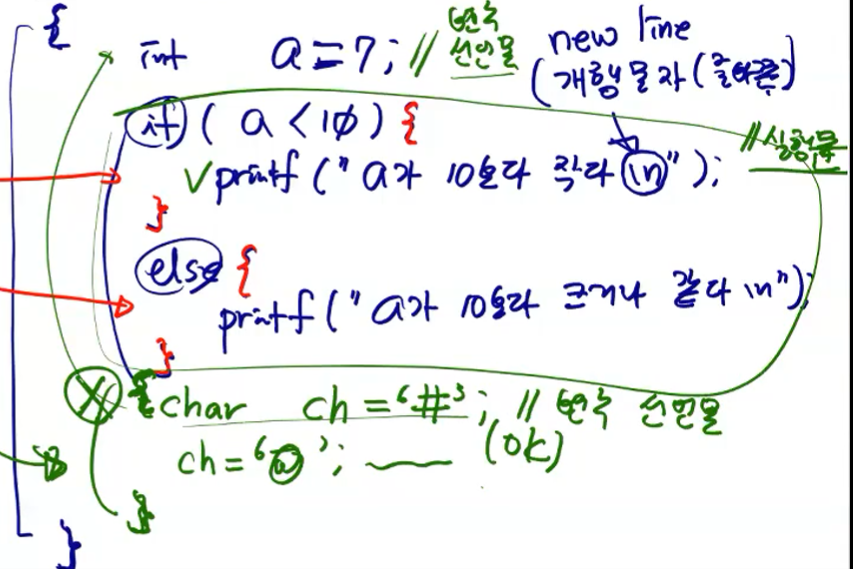 {
int a=7; // 변수 선언문
new line
(개행문자(줄바꿈)
if ( a < 10 ) {
// 실행문
printf ("a가 10보다 작다 \n");
}
else {
printf ("a가 10보다 크거나 같다 \n");
}
X { char ch = '#'; // 변수 선언문
ch = '@'; (OK)
}
}